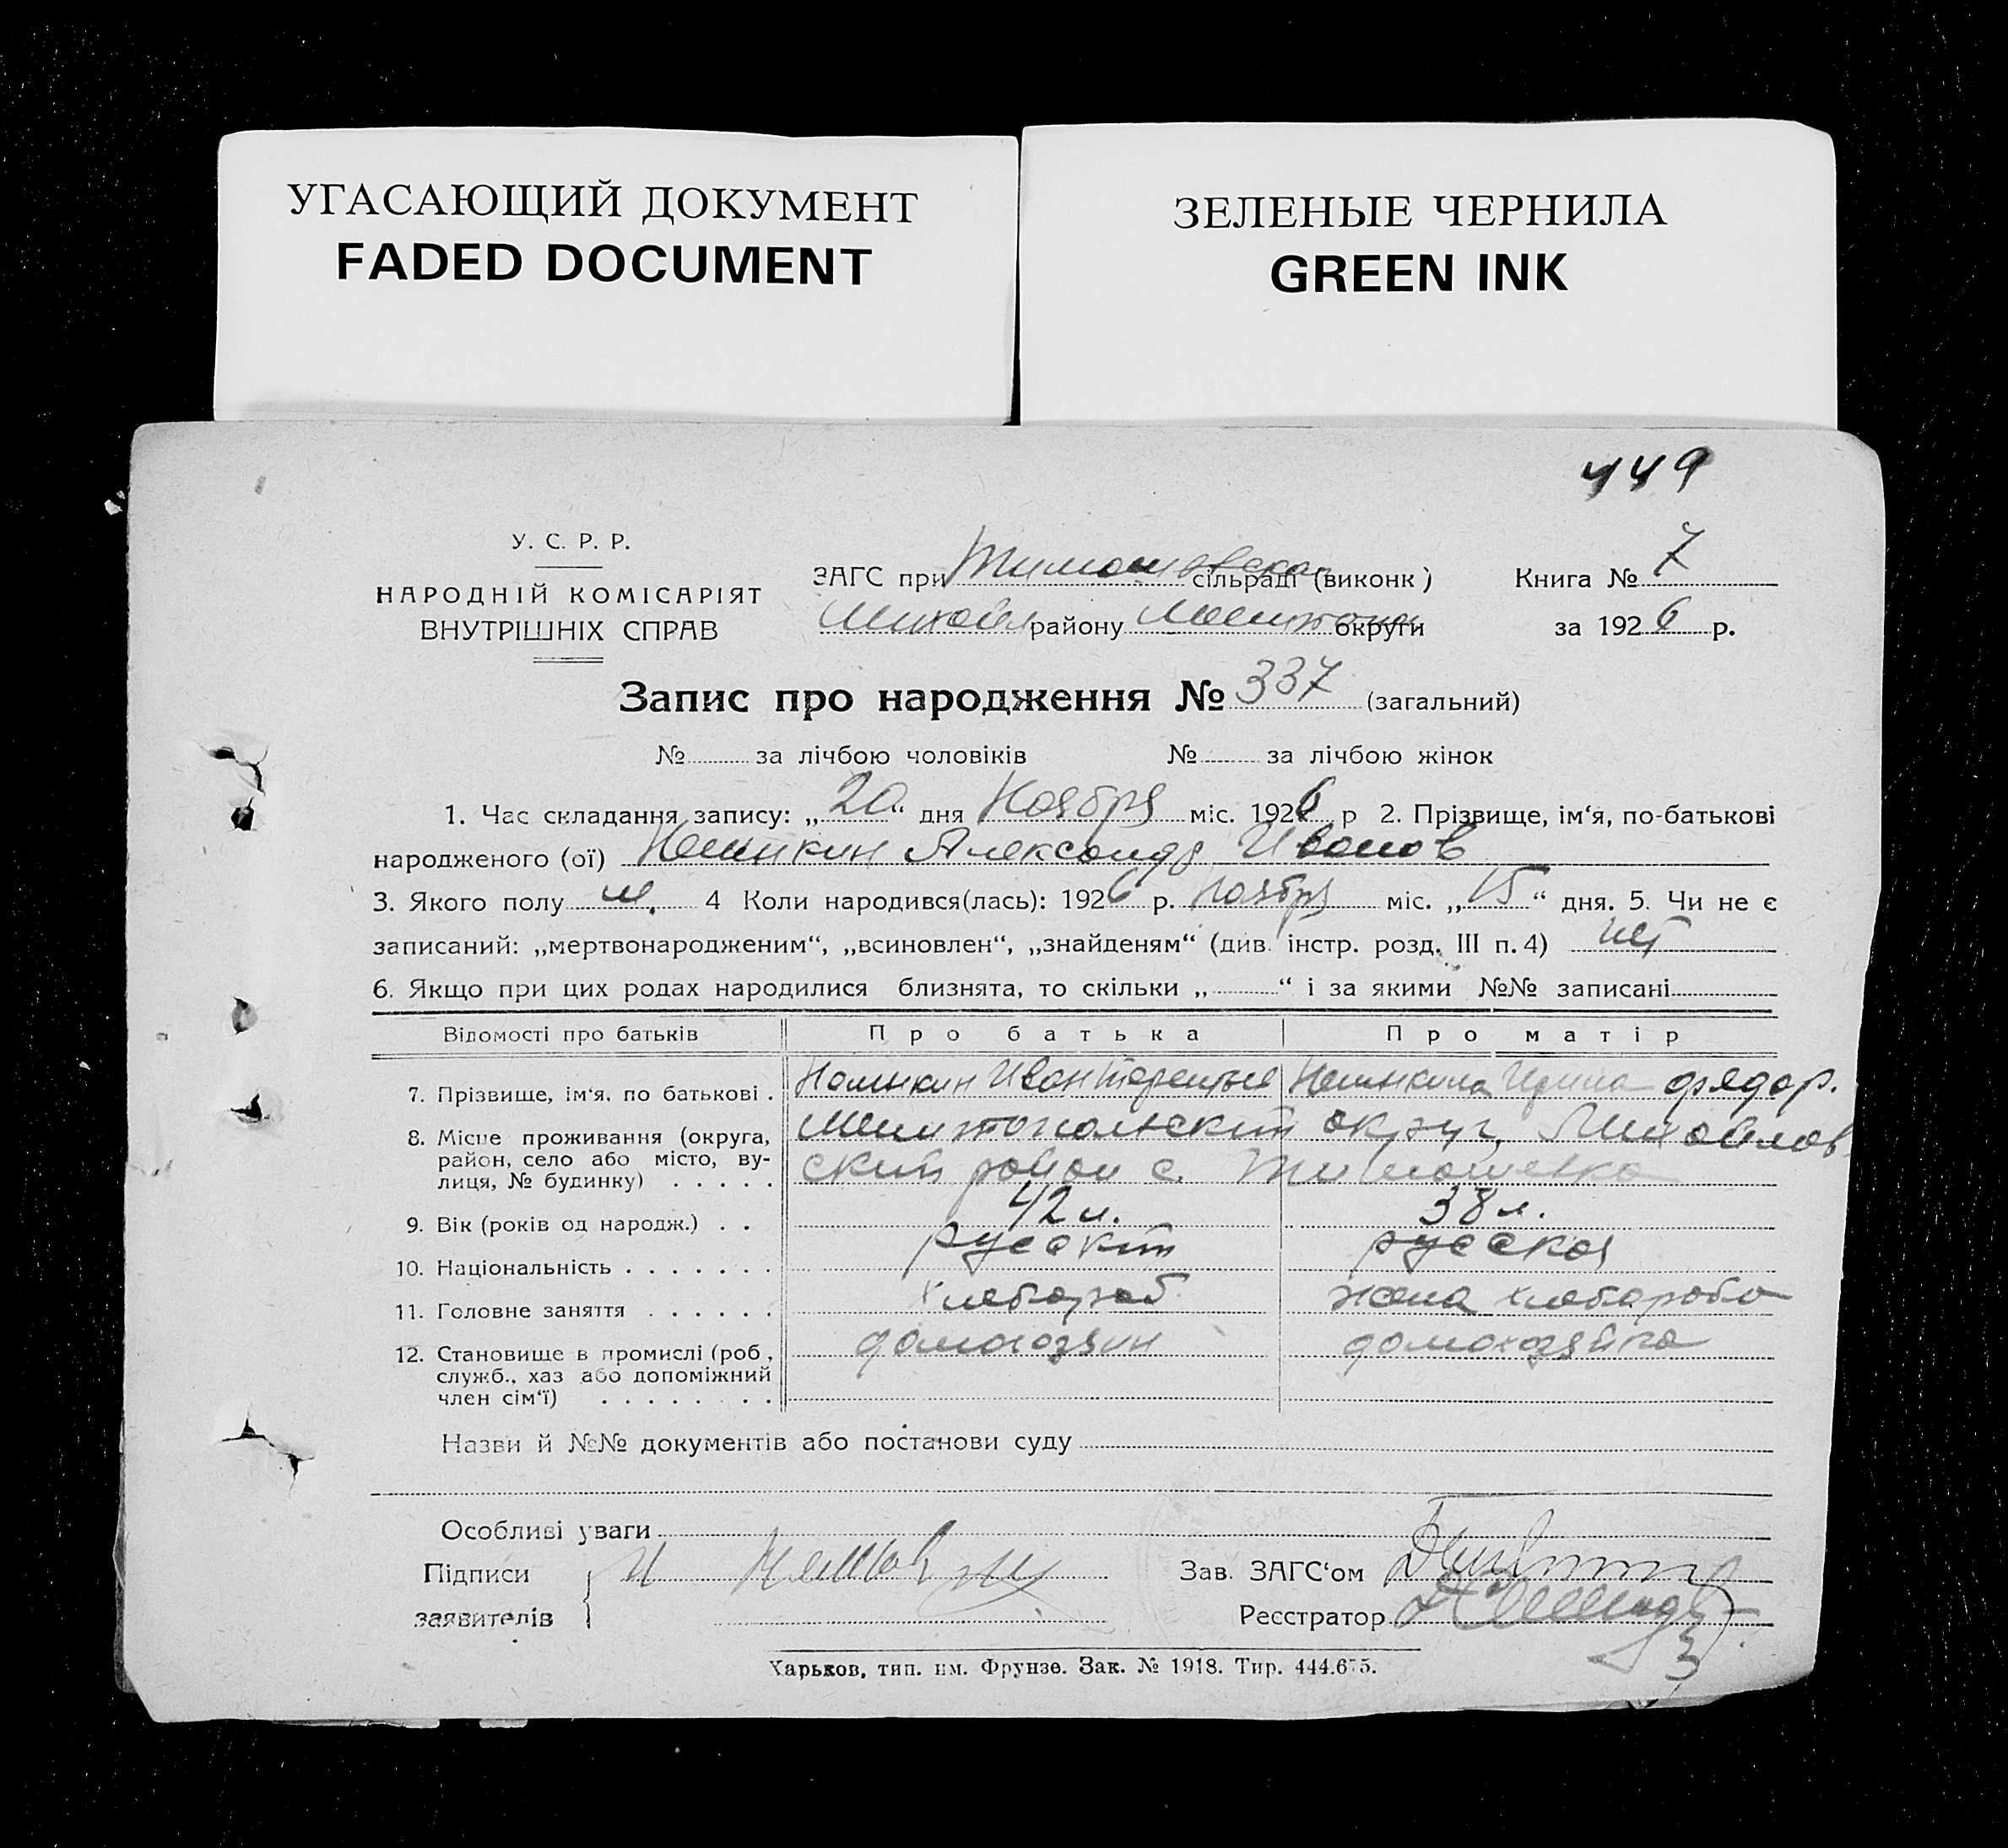 УГАСАЮЩИЙ ДОКУМЕНТ
FADED DOCUMENT
ЗЕЛЕНЫЕ ЧЕРНИЛА
GREEN INK
449
У. С. Р. Р.
НАРОДНІЙ КОМІСАРІЯТ
ВНУТРІШНІХ СПРАВ
ЗАГС при Тимошовской сільраді (виконк) Книга № 7
Михайл району Мелитопол округи за 1926 р.
Запис про народження № 337 (загальний)
№ за лічбою чоловіків № за лічбою жінок
1. Час складання запису: „20“ дня Ноября міс. 1926 р 2. Прізвище, ім‘я, по-батькові
народженого (ої) Александр Иванов
3. Якого полу м. 4 Коли народився(лась): 1926 р. Ноября міс. „15“ дня. 5. Чи не є
записаний: „мертвонародженим“, „всиновлен“, „знайденям“ (див. інстр. розд. III п. 4) нет
6. Якщо при цих родах народилися близнята, то скільки „ “ і за якими №№ записані
Відомості про батьків Про батька Про матір
7. Прізвище, ім‘я, по батькові . Иван Терентьев Ирина Фядор.
8. Місце проживання (округа, район, село або місто, вулиця, № будинку) . . . . . Мелитопольский округ, Михайлов
ский район с. Тимошевка
9. Вік (років од народж.) . . 42 л. 38 л.
10. Національність . . . . . . . русский русская
11. Головне заняття . . . . . . хлебороб жена хлебороба
12. Становище в промислі (роб., служб., хаз або допоміжний член сім‘ї) . . . . . . . домохозяин домохозяйка
Назви й №№ документів або постанови суду
Особливі уваги
Підписи
заявителів
Зав. ЗАГС‘ом
Реєстратор
Харьков, тип. им. Фрунзе. Зак. № 1918. Тир. 444.675.